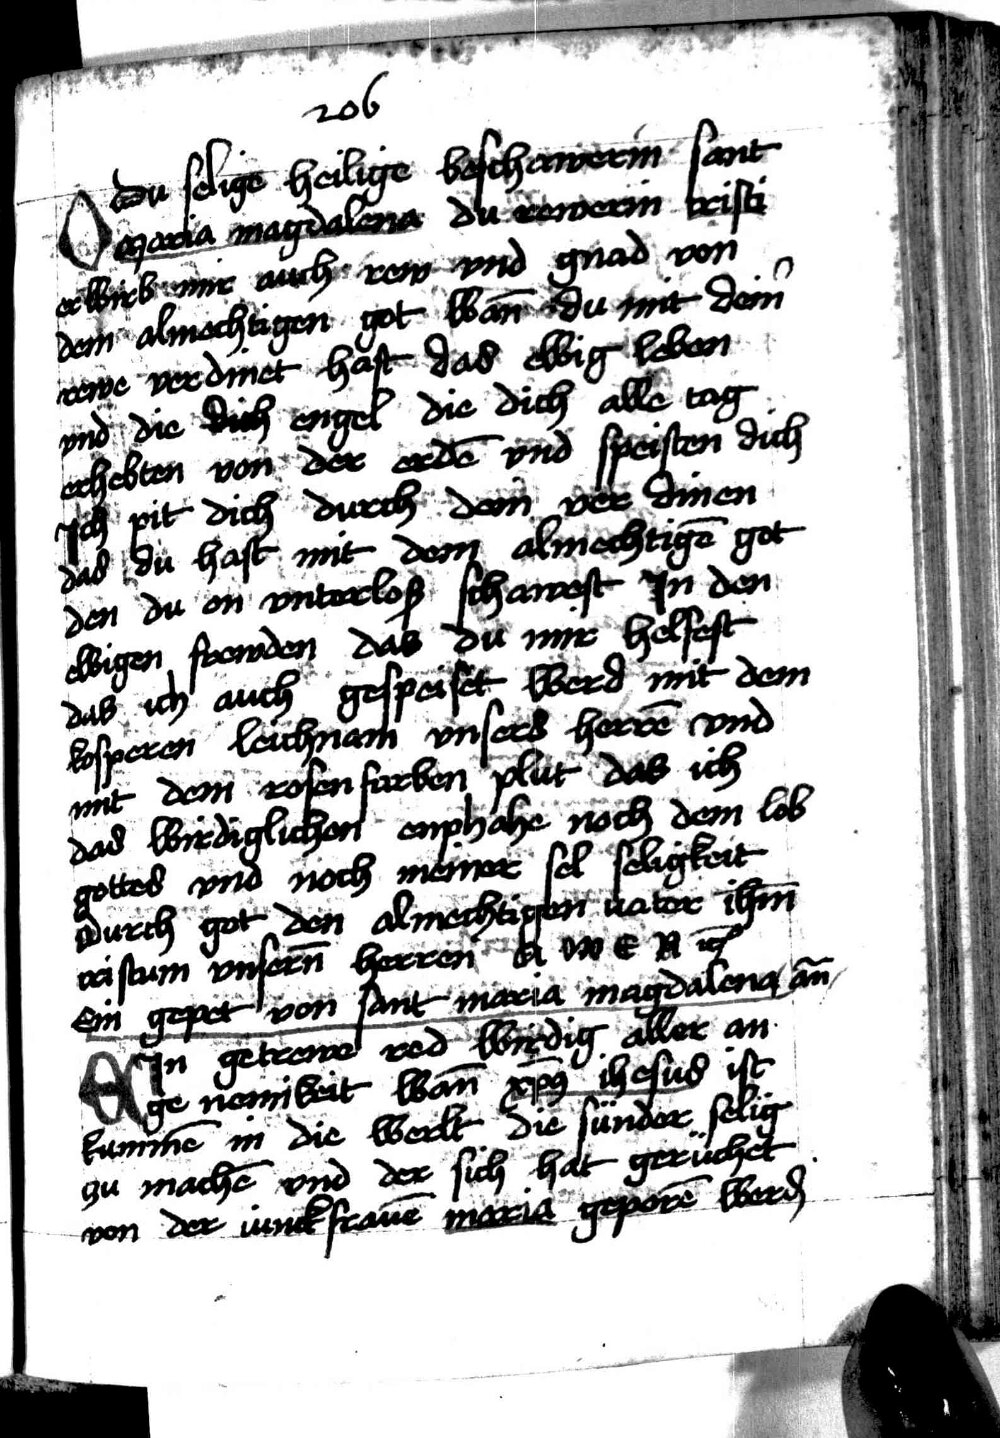 206
O du selige heilige beschawerin sant
maria magdalena du rewerin cristi
erwirb mir auch rew vnd gnad von
dem almechtigen got wan̄ du mit dein̄
rewe verdinet hast das ewig leben
vnd die dich engel die dich alle tag
erhebten von der erdē vnd speisten dich
Ich pit dich durch dein ver dinen
das du hast mit dem almechtigē got
den du on vnterloß schawest In den
ewigen frewden das du mir helfest
das ich auch gespeiset werd mit dem
kosperen leichnam vnsers herrē vnd
mit dem rosenfarben plut das ich
das wirdiglichen enphahe noch dem lob
gottes vnd noch meiner sel seligkeit
durch got den almechtigen vater ihm̄
cristum vnsern̄ herren A M E N
Ein gepet von sant maria magdalena an̄
EIn getrewe red wirdig aller an
ge nemikeit wan̄ xp̄s ihesus ist
kummē in die werlt die sünder selig
zu machē vnd der sich hat gerüchet
von der iunckfrauē maria geporē werd